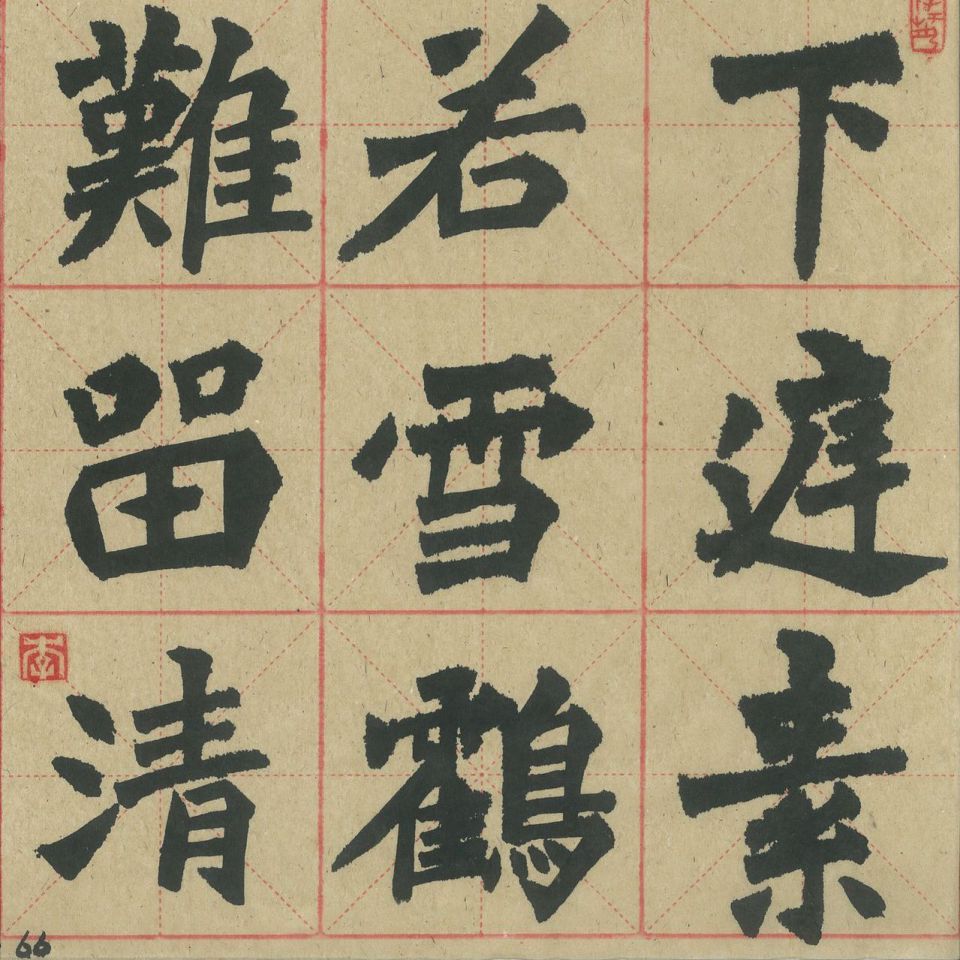 下遅素
若雪鶴
難留清
66